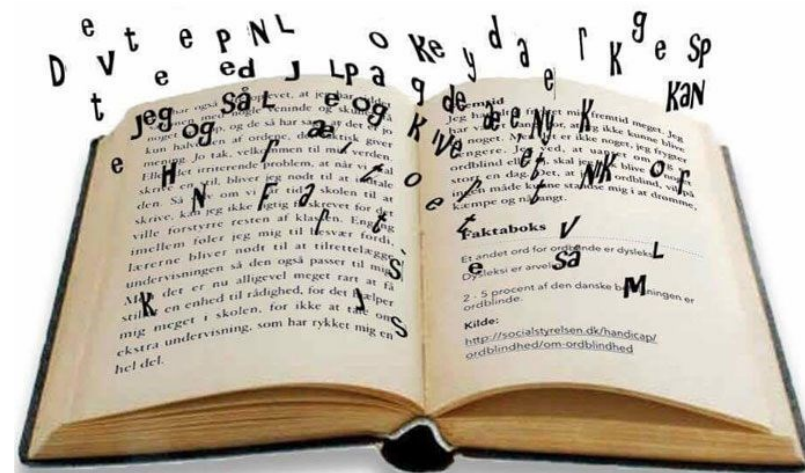 D e V t e P N L o Ke y d a e r K g e SP
t e ed J LP a g de e KaN
Jeg og SåL e og K IVe æ e e Ny K
har også oplevet, at jeg har
med nogle veninde og
noget og de så har at det er jo
kun halvdelen af ordene, der faktisk giver
mening. Jo tak, velkommen til min verden.
Eller det irriterende problem, at når vi skal
skrive en stil, bliver jeg nødt til at indtale
den. Så om vi får tid i skolen til at
skrive, kan jeg ikke rigtig få skrevet for det
ville forstyrre resten af klassen. Engang
imellem føler jeg mig til besvær fordi,
lærerne bliver nødt til at tilrettelægge
undervisningen så den også passer til mig.
Men det er nu alligevel meget rart at få
en enhed til rådighed, for det hjælper
mig meget i skolen, for ikke at tale om
ekstra undervisning, som har rykket mig en
hel del.
Fremtid
Jeg har frygtet min fremtid meget. Jeg
har for, at jeg ikke kunne blive
noget. Men det er ikke noget, jeg frygter
længere. Jeg ved, at uanset om jeg er
ordblind eller skal jeg blive til noget
stort en dag. Det, at jeg ordblind, vil på
ingen måde kunne standse mig i at drømme,
kæmpe og nå langt.
Faktaboks
Et andet ord for ordblinde er
Dysleksi er
2 - 5 procent af den danske befolkningen er
ordblinde.
Kilde:
http://socialstyrelsen.dk/handicap/
ordblindhed/om-ordblindhed